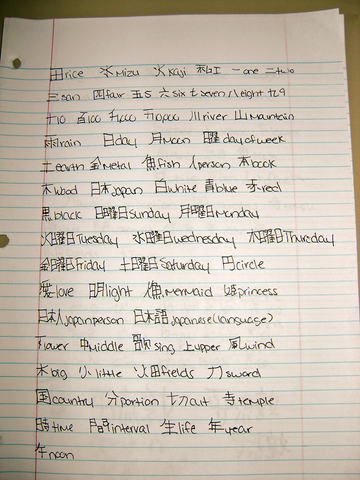 田rice 水Mizu 火Kaji 私I 一one 二two
三san 四four 五5 六six 七seven 八eight 九9
十10 百100 千1,000 万10,000 川river 山Mountain
雨rain 日day 月Moon 曜day of week
土earth 金Metal 魚fish 人person 本book
木wood 日本Japan 白white 青blue 赤red
黒black 日曜日Sunday 月曜日Monday
火曜日Tuesday 水曜日wednesday 木曜日Thursday
金曜日Friday 土曜日Saturday 円circle
愛love 明light Mermaid 姫princess
日本人Japan person 日本語Japanese(language)
下lower 中Middle 歌sing 上upper 風wind
big 小little 火田fields 刀sword
国country 分portion 切cut 寺temple
時time 間interval 生life 年year
午noon